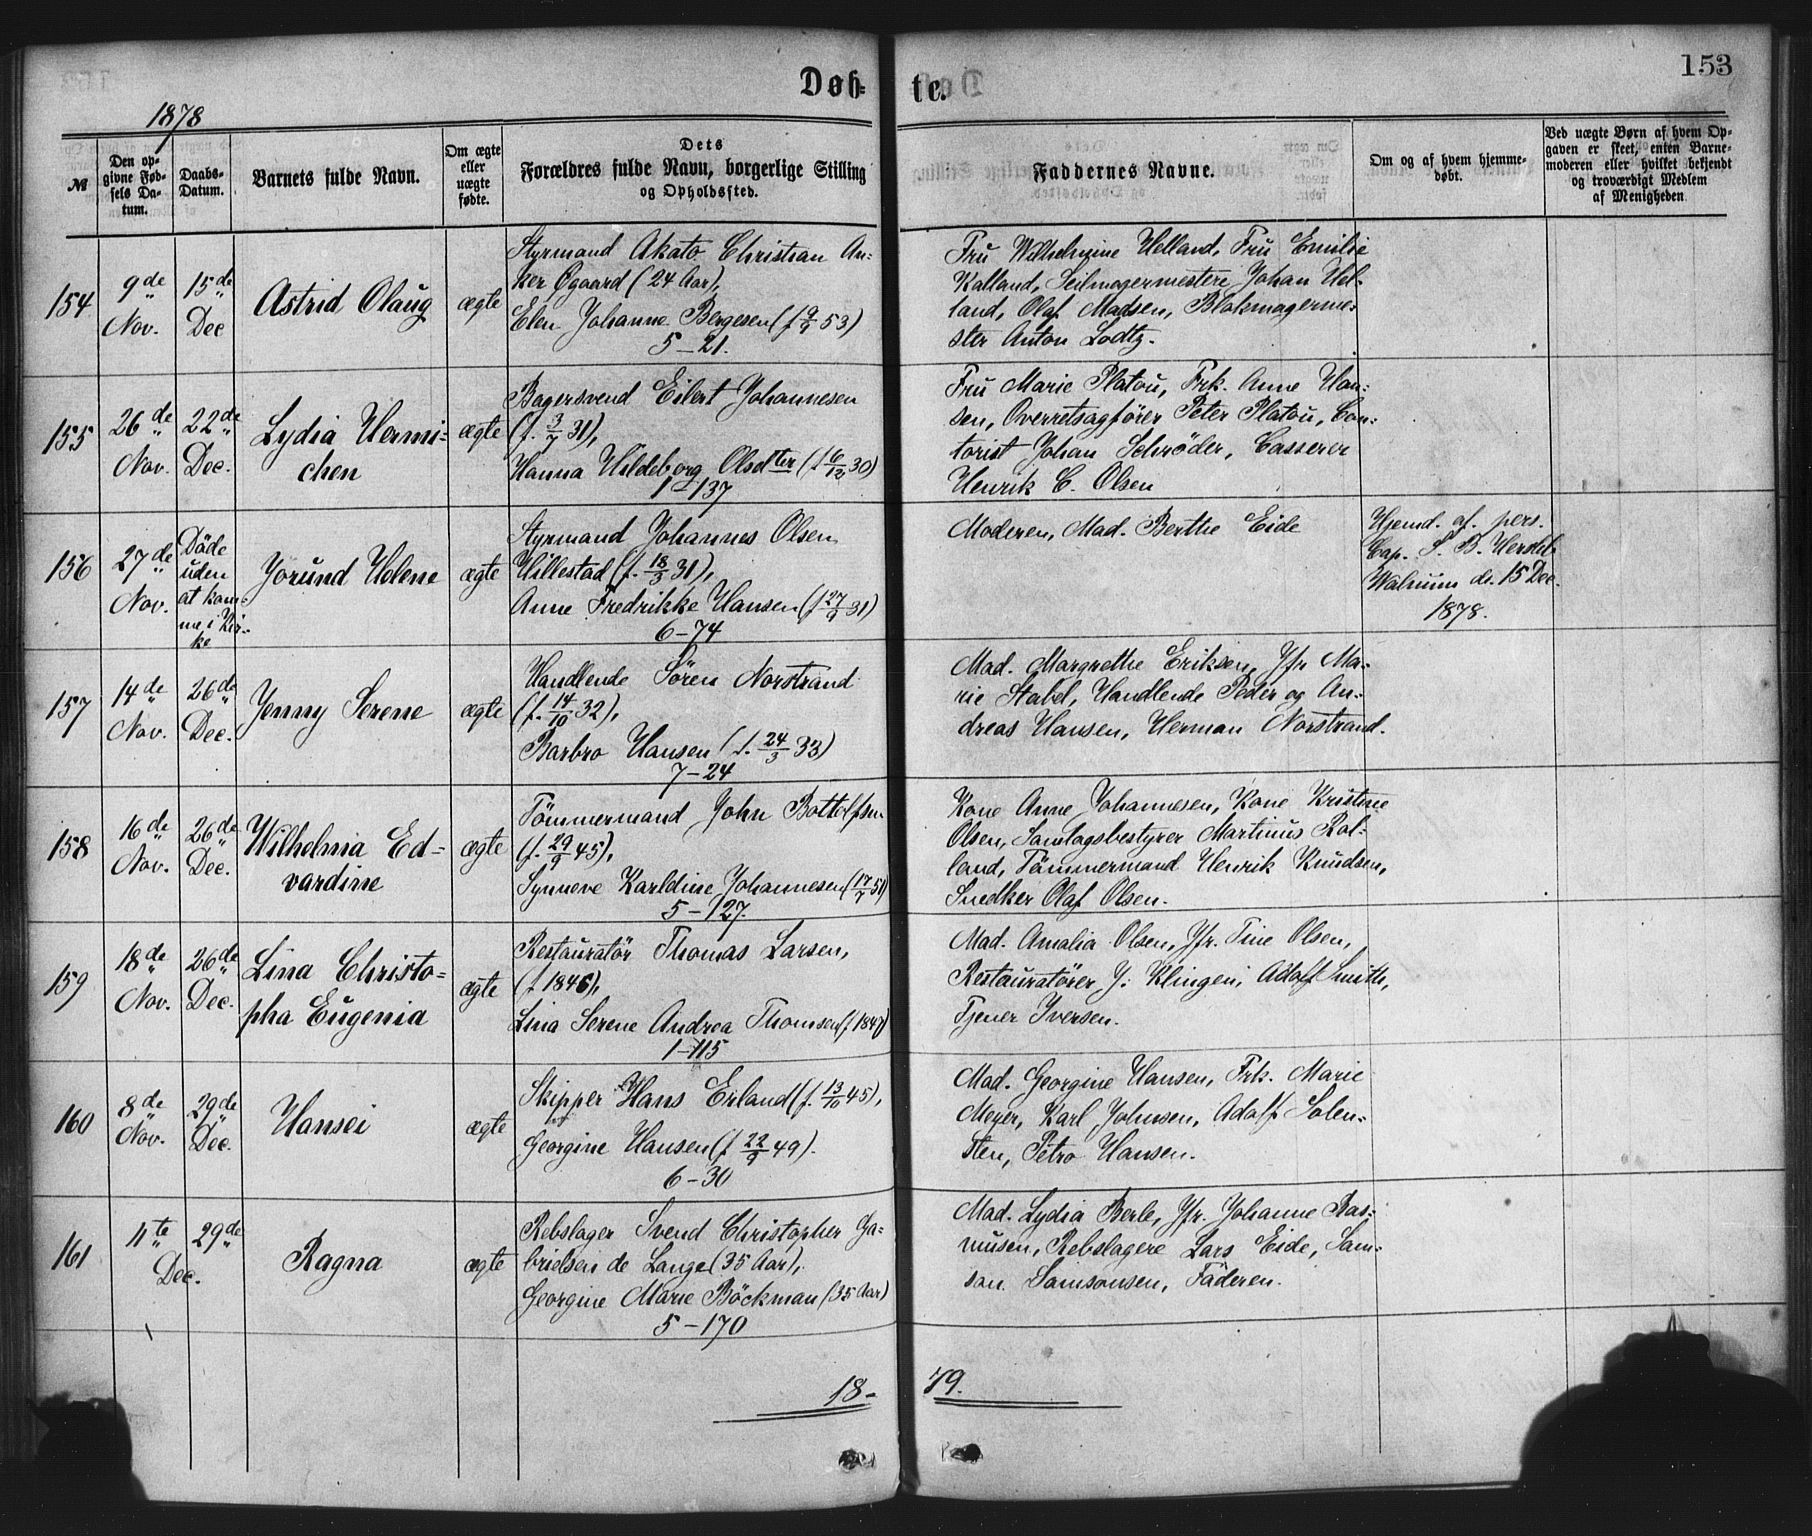 Døb-
te.
153
1878
№
Den op-
givne Fød-
sels Da-
tum.
Daabs-
Datum.
Barnets fulde Navn.
Om ægte
eller
uægte
fødte.
Dets
Forældres fulde Navn, borgerlige Stilling
og Opholdssted.
Faddernes Navne.
Om og af hvem hjemme-
døbt.
Ved uægte Børn af hvem Op-
gaven er skeet, enten Barne-
moderen eller hvilket bekjendt
og troværdigt Medlem
af Menigheden
154
9de
Nov.
15de
Dec
Astrid Olaug
ægte
Styrmand Akato Christian An-
ker Øgaard (24 Aar),
Elen Johanne Bergesen (f 9/9 53)
5-21.
Fru Wilhelmine Helland, Fru Emilie
Kalland, Seilmagermestere Johan Hel-
land, Olaf Madsen, Blokmagerme-
ster Anton Lodtz.
155
26de
Nov.
22de
Dec.
Lydia Hermi-
chen
ægte
Bagersvend Eilert Johannesen
(f. 3/7 31),
Hanna Hildeborg Olsdter (f 6/12 30)
1-137
Fru Marie Platou, Frk. Anne Han-
sen, Overretsagfører Peter Platou, Con-
torist Johan Schrøder, Casserer
Henrik C. Olsen
156
27de
Nov.
Døde
uden
at kom-
me i Kir-
ke
Jorund Helene
ægte
Styrmand Johannes Olsen
Hillestad (f. 18/3 31),
Anne Fredrikke Hansen (f 27/9 31)
6-74
Moderen, Mad. Berthe Eide
Hjemd. af pers.
Cap. S. B. Hersleb
Walnum d. 15 Dec.
1878.
157
14de
Nov.
26de
Dec.
Jenny Serene
ægte
Handlende Søren Norstrand
(f. 14/10 32),
Barbro Hansen (f. 24/3 33)
7-24
Mad. Margrethe Eriksen, Jfr Ma-
rie Stabel, Handlende Peder og An-
dreas Hansen, Herman Norstrand.
158
16de
Nov.
26de
Dec.
Wilhelmia Ed-
vardine
ægte
Tømmermand John Bottolfsen
(f. 29/9 45),
Synneve Karldine Johannesen (17/7 51)
5-127.
Kone Anne Johannesen, Kone Kristine
Olsen, Samlagsbestyrer Martinus Rol-
land, Tømmermand Henrik Knudsen,
Snedker Olaf Olsen.
159
18de
Nov.
26de
Dec.
Lina Christo-
pha Eugenia
ægte
Restauratør Thomas Larsen,
(f 1846),
Lina Serene Andrea Thomsen (f 1847)
1-115
Mad. Amalia Olsen, Jfr. Tine Olsen,
Restauratører J. Klingen, Adolf Smith,
Tjener Iversen.
160
8de
Nov.
29de
Dec.
Hansei
ægte
Skipper Hans Erland (f. 13/10 45),
Georgine Hansen (f 22/9 49).
6-30
Mad. Georgine Hansen, Frk. Marie
Meyer, Karl Johnsen, Adolf Solen-
sten, Petro Hansen.
161
11te
Dec.
29de
Ragna
ægte
Rebslager Svend Christopher Ga-
brielsen de Lange (35 Aar),
Georgine Marie Böckman (35 Aar)
5-170
Mad. Lydia Berle, Jfr. Johanne Ras-
musen, Rebslagere Lars Eide, Sam-
son Samsonsen, Faderen.
18-
79.